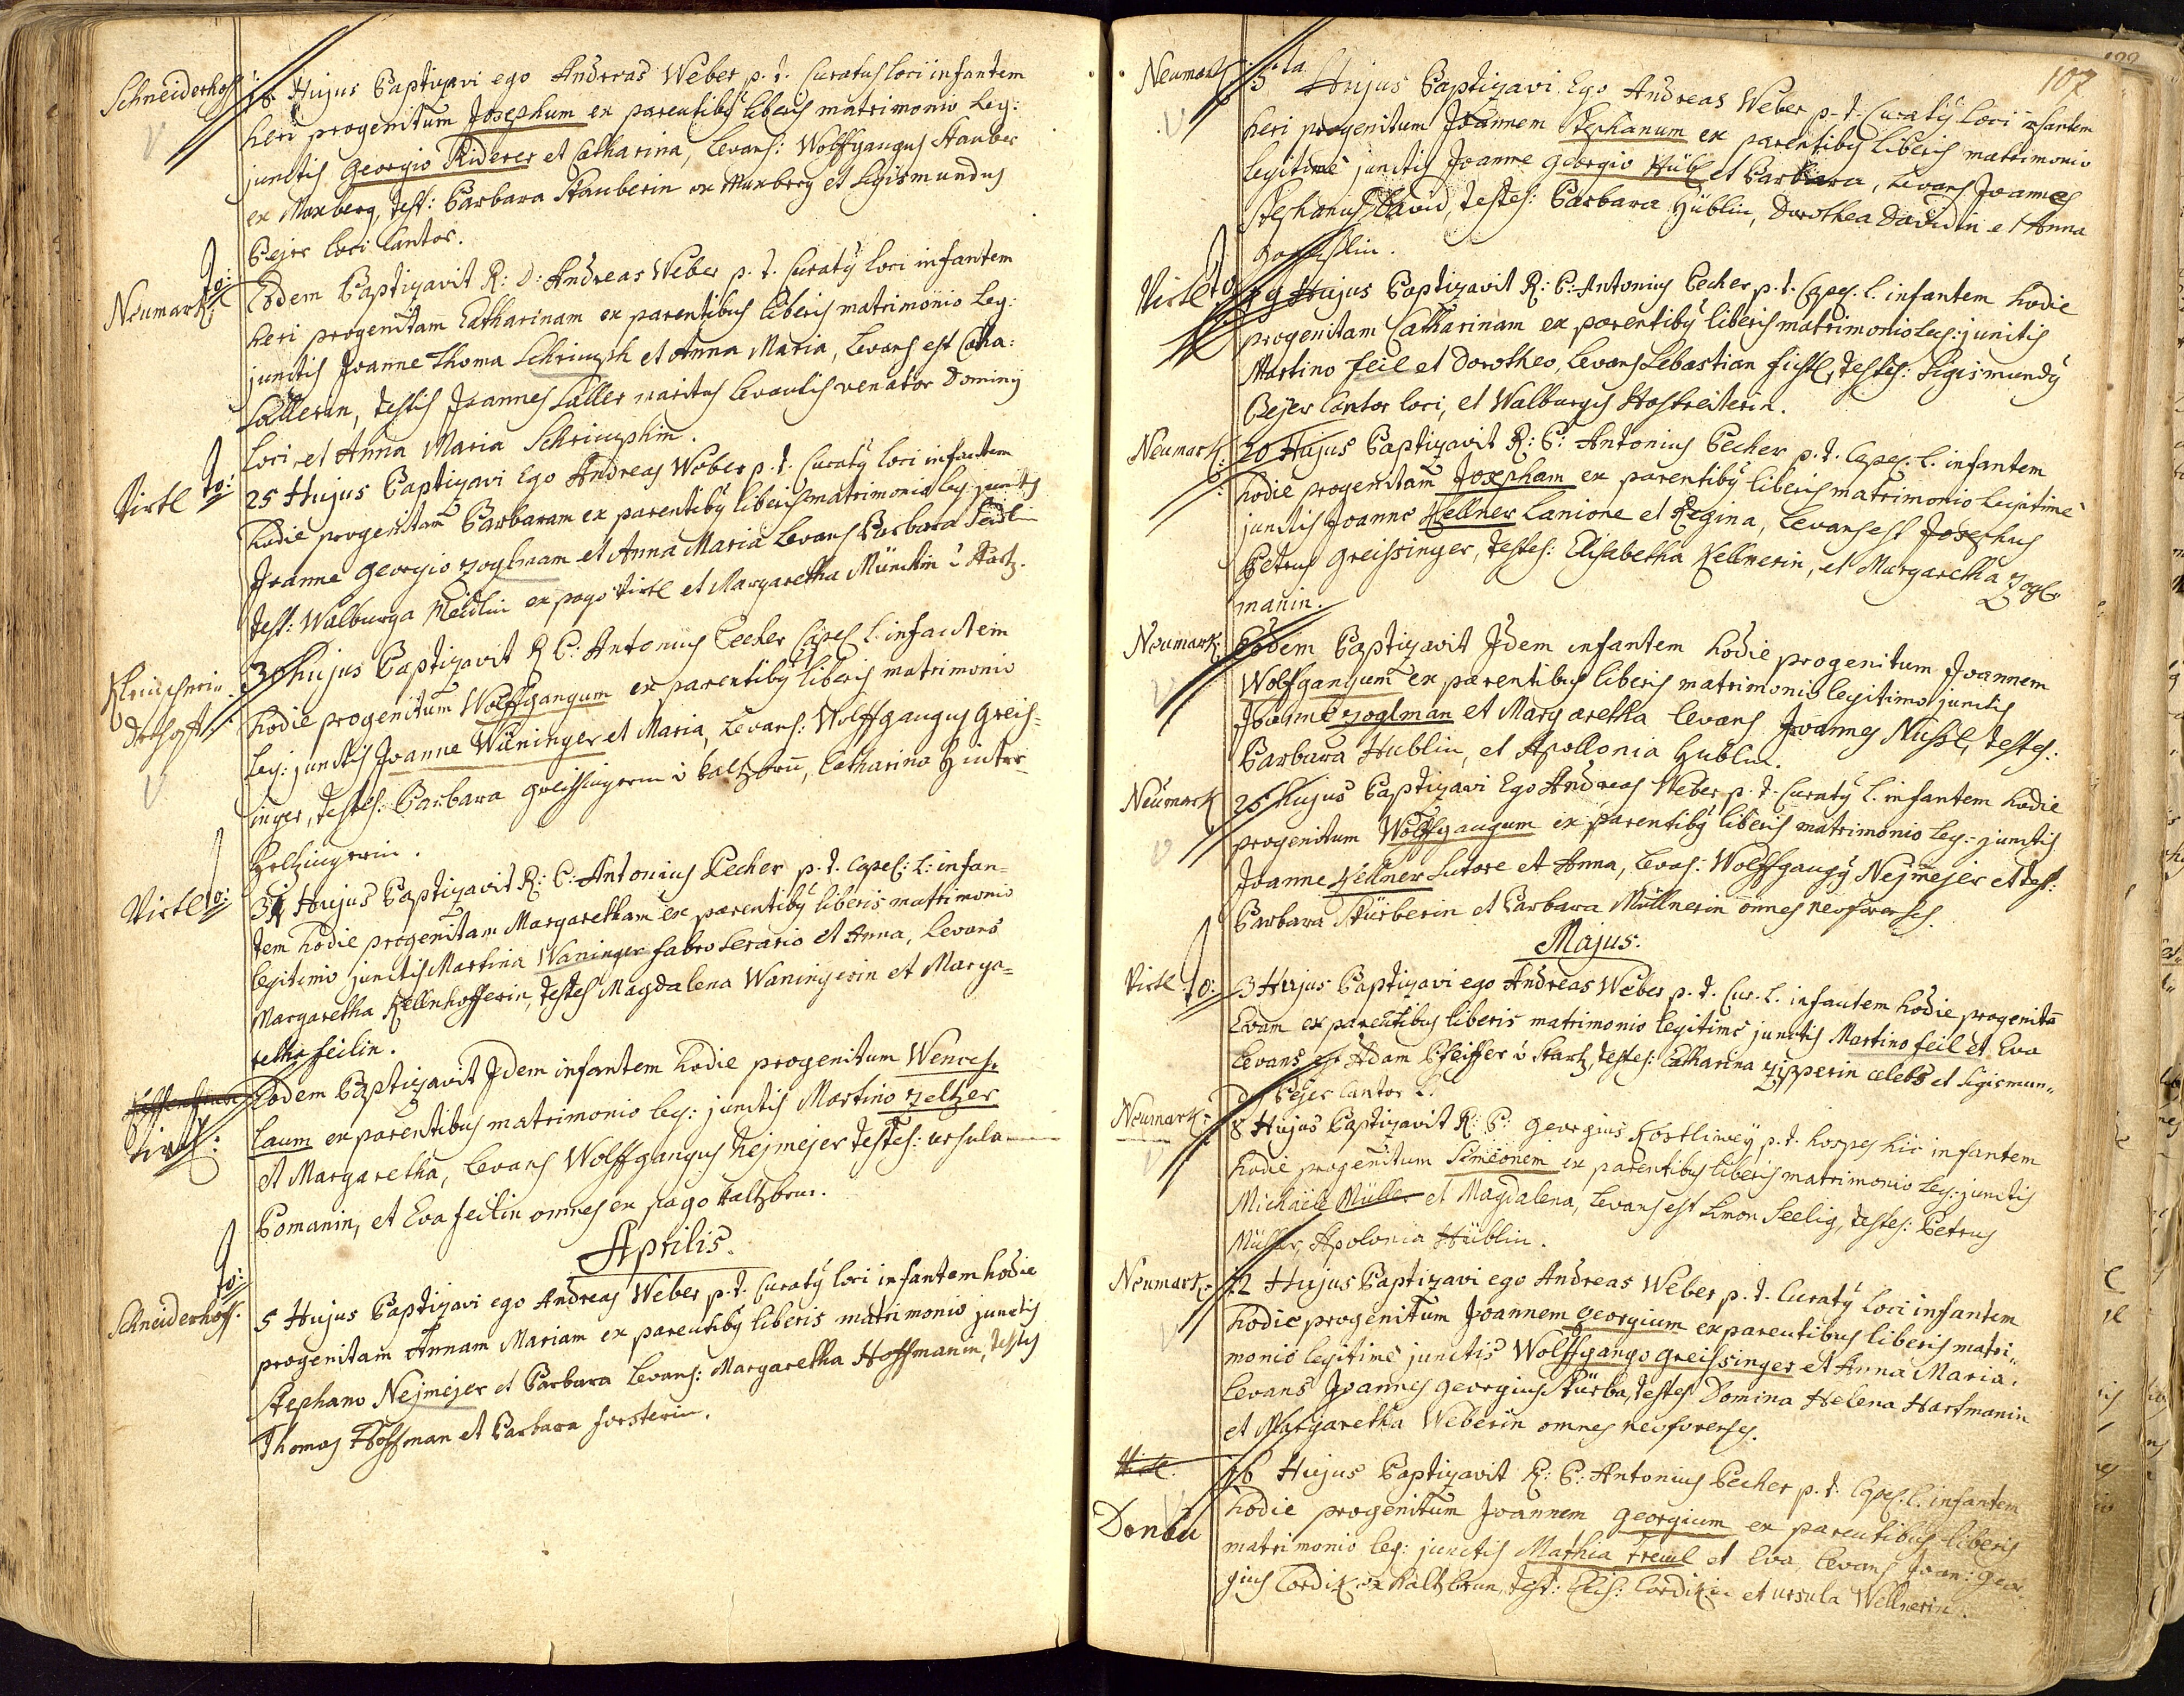 Schneiderhof
18 Hujus Baptizavi ego Andreas Weber p. t. Curatus loci infantem
heri progenitum Josephum ex parentibȳ liberis matrimonio leg:
junctis Georgio Riderer et Catharina, Levans: Wolffgangus Stauber
ex Maxberg, test: Barbara Stauberin ex Maxberg et Sigismundus
Bejer loci Cantor.
Neumark: to:
Eodem Baptizavit R: D: Andreas Weber p. t. Curatȳ loci infantem
heri progenitam Catharinam ex parentibus liberis matrimonio leg:
junctis Joanne Thoma Schrimpf et Anna Maria, Levans est Catha:
Sallerin, testis Joannes Saller maritus levantis venator Dominij
loci et Anna Maria Schrimphin.
Virtl to:
25 Hujus Baptizavi Ego Andreas Weber p. t. Curatȳ loci infantem
hodie progenitam Barbaram ex parentibȳ liberis matrimonio leg: junctis
Joanne Georgio Zoglmam et Anna Maria Levans Barbara
test: Walburga ex pago Virtl et Margaretha
30 hujus Baptizavit R P: Antonius Pecher Capel. l. infantem
hodie progenitum Wolffgangum ex parentibȳ liberis matrimonio
leg: junctis Joanne Waninger et Maria, Levans: Wolffgangus Greis=
inger, testes: Barbara Greissingerin Catharina Hinter=
holtzingerin.
Virtl to:
31 Hujus Baptizavit R: P: Antonius Pecher p. t. Capel: L: infan=
tem hodie progenitam Margaretham ex parentibȳ liberis matrimonio
legitimo junctis Martino Waninger fabro serario et Anna, Levans
Margaretha Kellnhofferin, testes Magdalena Waningerin et Marga=
retha Feilin.
Virtl:
Eodem Baptizavit Idem infantem hodie progenitum Wences=
laum ex parentibus matrimonio leg: junctis Martino Zeltzer
et Margaretha, Levans Wolffgangus Nejmejer testes: Ursula
Pomanin, et Eva Feilin omnes ex pago Kaltzbrun.
Aprilis.
Schneiderhof. to:
5 Hujus Baptizavi ego Andreas Weber p. t. Curatȳ loci infantem hodie
progenitam Annam Mariam ex parentibȳ liberis matrimonio junctis
Stephano Nejmejer et Barbara Levans: Margaretha Hoffmanin, testes
Thomas Hoffman et Barbara Forsterin.
107
Neumark
5ta Hujus Baptizavi Ego Andreas Weber p. t. Curatȳ loci infantem
heri progenitum Joannem Stephanum ex parentibȳ liberis matrimonio
legitimè junctis Joanne Georgio Hübl et Barbara, Levans Joannes
Stephanus David, testes: Barbara Hüblin, Dorothea Davidin et Anna
Virtl to:
19 Hujus Baptizavit R: P: Antonius Pecher p. t. Capel. l. infantem hodie
progenitam Catharinam ex parentibȳ liberis matrimonio leg: junctis
Martino Feil et Dorothea, Levans Sebastian Fichtl, testes: Sigismundȳ
Bejer Cantor loci, et Walburgis Hoffreiterin.
Neumark:
20 Hujus Baptizavit R: P: Antonius Pecher p. t. Capel. l. infantem
hodie progenitam Josepham ex parentibȳ liberis matrimonio legitimè
junctis Joanne Kellner Lanione et Regina, Levans est Josephus
Petrus Greissinger, testes: Elisabetha Kellnerin, et Margaretha Zogl=
manin.
Neumark
Eodem Baptizavit Idem infantem hodie progenitum Joannem
Wolffgangum ex parentibus liberis matrimonio legitimo junctis
Joanne Zoglman et Margaretha Levans Joannes Nussl, testes:
Barbara Hublin, et Apollonia Hüblin.
Neumark
25 Hujus Baptizavi Ego Andreas Weber p. t. Curatȳ l. infantem hodie
progenitum Wolffgangum ex parentibȳ liberis matrimonio leg: junctis
Joanne Kellner Sutore et Anna, Levas: Wolffgangȳ Nejmejer et test:
Barbara Stürberin et Barbara Müllnerin omnes neoforenses.
Majus.
Virtl. to:
3 Hujus Baptizavi ego Andreas Weber p. t. Cur. L. infantem hodie progenitā
Evam ex parentibus liberis matrimonio legitime junctis Martino Feil et Eva
Levans est Adam Pfeiffer testes: Catharina Zipperin celebs et Sigismun=
dȳ Bejer Cantor L.
Neumark:
8 Hujus Baptizavit R: P: Georgius p. t. hospes hic infantem
hodie progenitum Simeonem ex parentibus liberis matrimonio leg: junctis
Michaele Müller et Magdalena, Levans est Simon Seelig, testes: Petrus
Müller, Apolonia Hüblin.
Neumark:
12 Hujus Baptizavi ego Andreas Weber p. t. Curatȳ loci infantem
hodie progenitum Joannem Georgium ex parentibus liberis matri=
monio legitime junctis Wolffgango Greissinger et Anna Maria.
Levans Joannes Georgius Stürba, testes: Domina Helena Hartmanin
et Margaretha Weberin omnes neoforenses.
Virtl.
Donau
16 Hujus Baptizavit R: P: Antonius Pecher p. t. Capel. l. infantem
hodie progenitum Joannem Georgium ex parentibus liberis
matrimonio leg: junctis Mathia Treml et Eva, Levans Joan: Geor=
gius Cordik ex Kaltzbrun, test: Elis: Cordikin et Ursula Wellnerin.